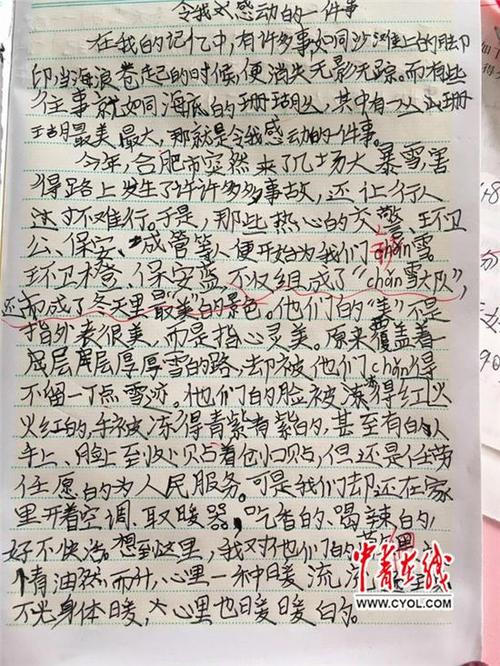 令我感动的一件事
在我的记忆中,有许多事如同沙滩上的脚
印,当海浪卷起的时候,便消失无影无踪。而有些
往事就如同海底的珊瑚丛,其中有一丛珊
瑚最美最大,那就是令我感动的一件事。
今年,合肥市突然来了几场大暴雪,害
得路上发生了许许多多事故,还让行人
过环难行。于是,那些热心的交警、环卫
公、保安、成管等人便开始为我们chǎn雪
环卫、保安 不仅组成了“chǎn雪大队”,
还而成了冬天里最“美”的景色。他们的“美”不是
指外表很美,而是指心灵美。原来覆盖着一
层层层层厚厚雪的路,却被他们chǎn得
不留一丁点雪迹。他们的脸被冻得红火
火红的,手被冻得青紫青紫的,甚至有的人
手上、脸上到处贴着创口贴,但还是任劳
任愿的为人民服务。可是我们却还在家
里开着空调、取暖器,吃香的、喝辣的,
好不快活。想到这里,我对他们的
情油然而升,心里一种暖流,
不光身体暖,心里也暖暖的。
中青在线
WWW.CYOL.COM